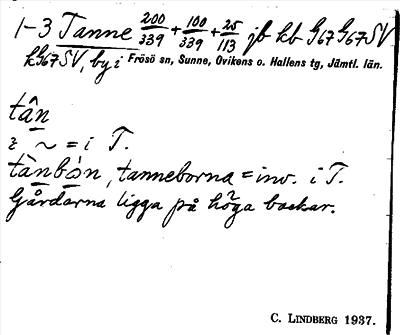 1-3 Tanne 200/339 + 100/339 + 25/113 jb kb G67 G67SV
kG67SV, by i Frösö sn, Sunne, Ovikens o. Hallens tg, Jämtl. län.
tân
i ~ = i T.
tànbón, tanneborna = inv. i T.
Gårdarna ligga på höga backar.
C. LINDBERG 1937.